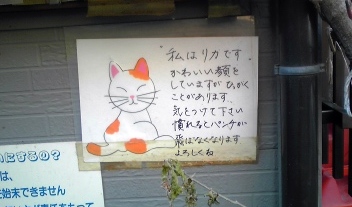 私はリカです
かわいい顔を
していますがひっかく
ことがあります
気をつけて下さい
慣れるとパンチが
飛ばなくなります
よろしくね
にするの?
は、
始末できません